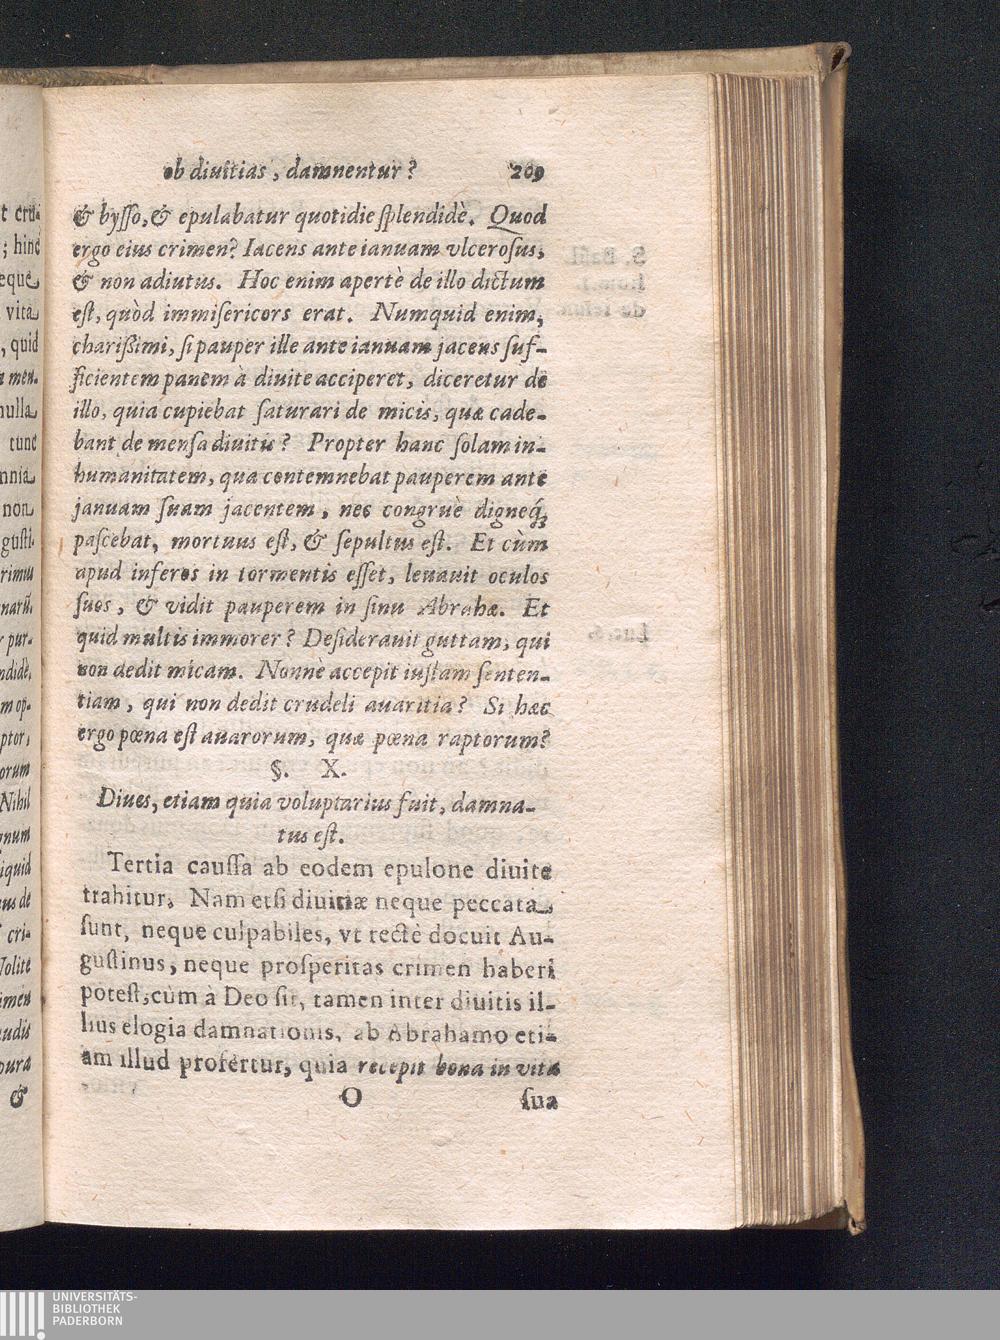 ob diuitias, damnentur? 209
& byſſo, & epulabatur quotidie ſplendidè. Quod
ergo eius crimen? Iacens ante ianuam vlceroſus,
& non adiutus. Hoc enim apertè de illo dictum
eſt, quòd immiſericors erat. Numquid enim,
charißimi, ſi pauper ille ante ianuam jacens ſuf-
ficientem panem à diuite acciperet, diceretur de
illo, quia cupiebat ſaturari de micis, quæ cade-
bant de menſa diuitis? Propter hanc ſolam in-
humanitatem, qua contemnebat pauperem ante
januam ſuam jacentem, nec congruè digneq́;
paſcebat, mortuus eſt, & ſepultus eſt. Et cùm
apud inferos in tormentis eſſet, leuauit oculos
ſuos, & vidit pauperem in ſinu Abrahæ. Et
quid multis immorer? Deſiderauit guttam, qui
non dedit micam. Nonnè accepit iuſtam ſenten-
tiam, qui non dedit crudeli auaritia? Si hæc
ergo pœna eſt auarorum, quæ pœna raptorum?
§. X.
Diues, etiam quia voluptarius fuit, damna-
tus eſt.
Tertia cauſſa ab eodem epulone diuite
trahitur. Nam etſi diuitiæ neque peccata
ſunt, neque culpabiles, vt rectè docuit Au-
guſtinus, neque proſperitas crimen haberi
poteſt, cùm à Deo ſit, tamen inter diuitis il-
lius elogia damnationis, ab Abrahamo eti-
am illud profertur, quia recepit bona in vita
O ſua
t cru-
; hinc
eque
vita
, quid
men.
nulla
tunc
mnia
non
guſti-
rimus
narũ,
pur-
ndidè,
m op-
ptor,
orum
Nihil
gnum
iquid
us de
cri-
Nolite
imen
udis
pura
&
UNIVERSITÄTS-
BIBLIOTHEK
PADERBORN